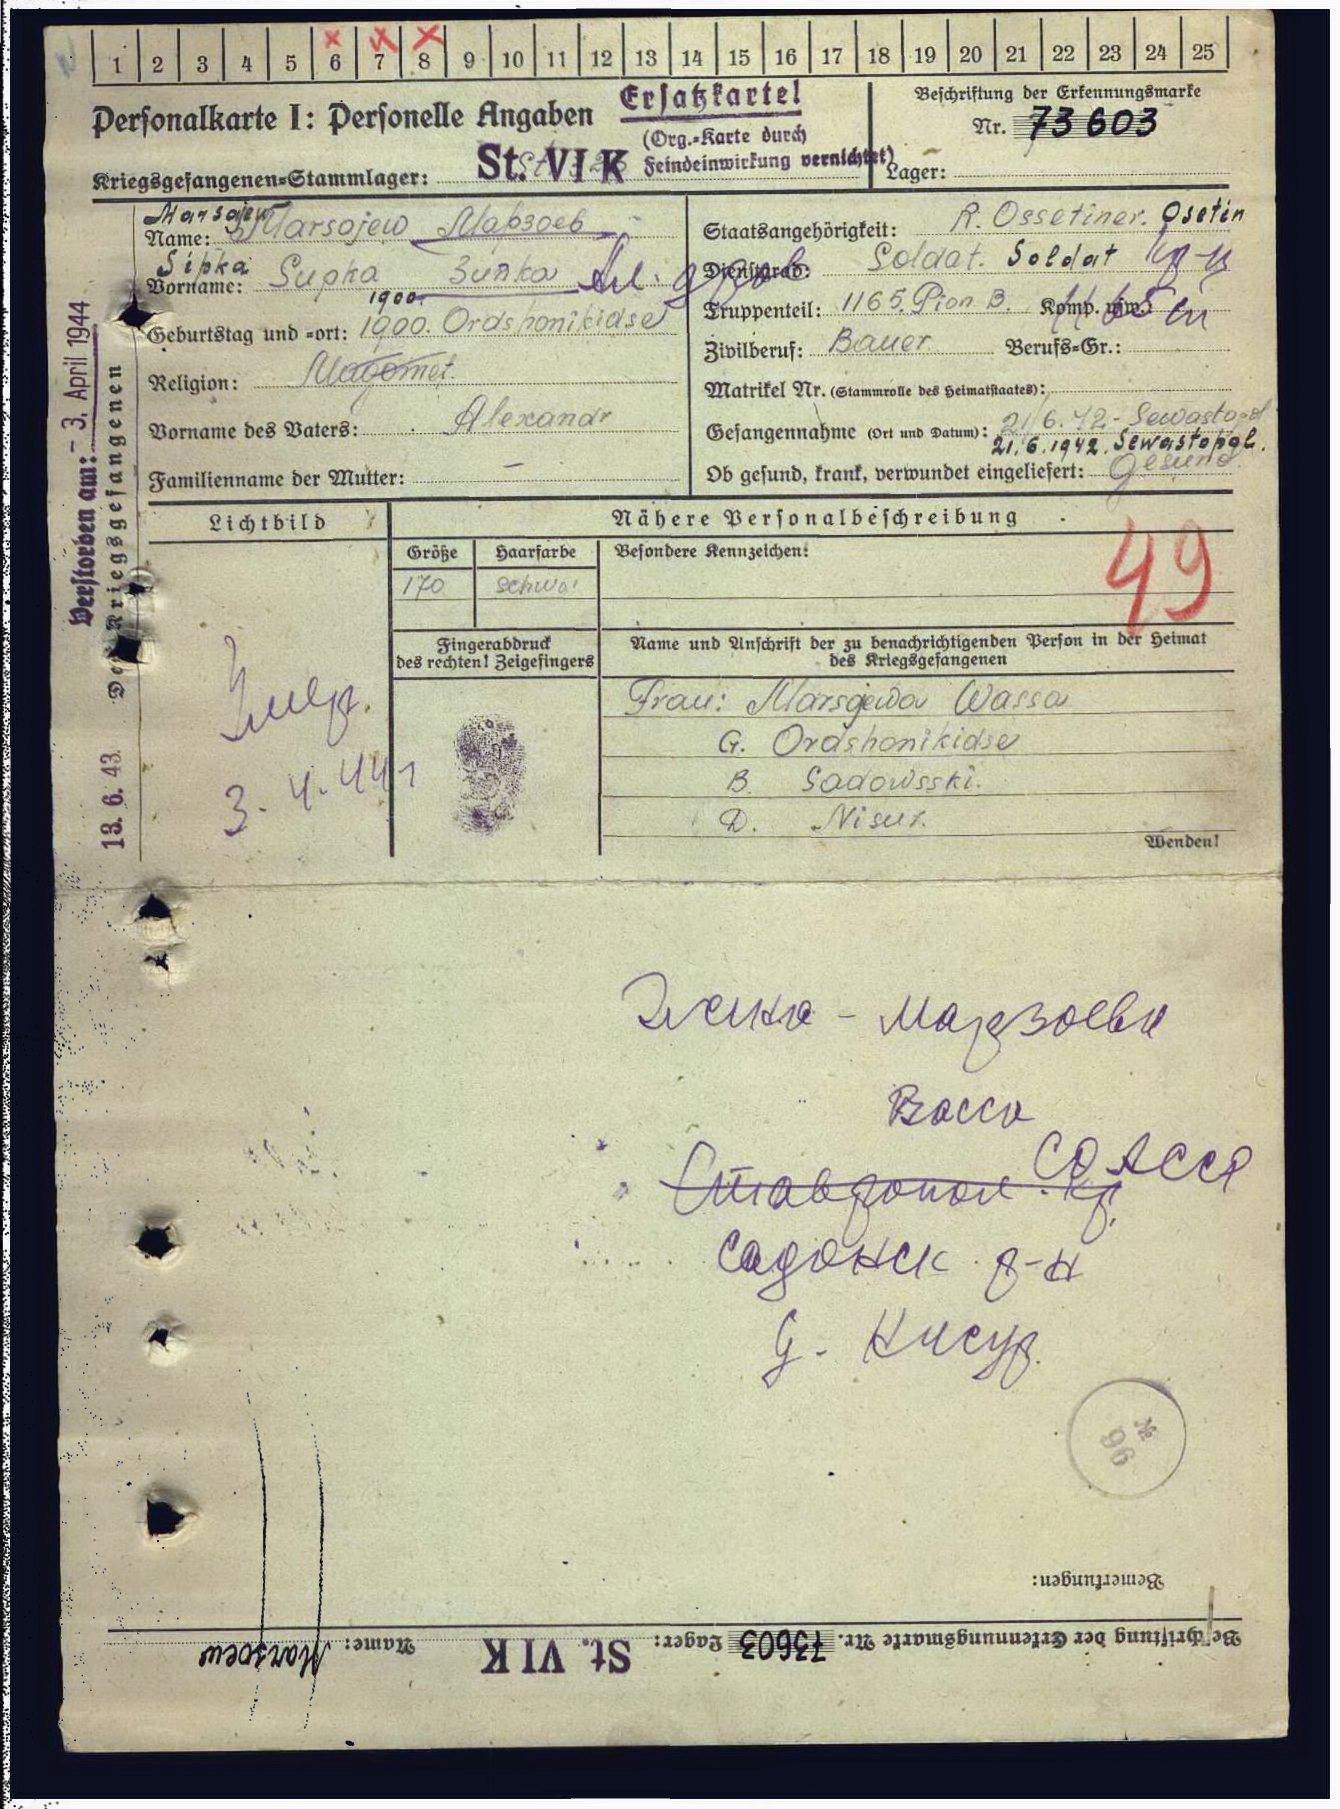 1 2 3 4 5 6 7 8 9 10 11 12 13 14 15 16 17 18 19 20 21 22 23 24 25
Personalkarte I: Personelle Angaben
Ersatzkartei
(Org.-Karte durch
Feindeinwirkung vernichtet)
Beschriftung der Erkennungsmarke
Nr. 73603
Kriegsgefangenen-Stammlager: St. VI K
Lager:
Marsajew
Name: Marsajew Марзоев
Sipka
Vorname: Supka Зипка
1900.
Geburtstag und -ort: 1900. Ordshonikidse
Religion: Magomet.
Vorname des Vaters: Alexandr
Familienname der Mutter: –
Staatsangehörigkeit: R. Ossetiner. Osetin
Dienstgrad: Soldat. Soldat кр-ц
Truppenteil: 1165. Pion B. Komp. usw.:
Zivilberuf: Bauer Berufs-Gr.:
Matrikel Nr. (Stammrolle des Heimatstaates):
Gefangennahme (Ort und Datum): 21/6.42 - Sewastopol
21.6.1942. Sewastopol.
Ob gesund, krank, verwundet eingeliefert: Gesund.
Verstorben am: - 3. April 1944
Der Kriegsgefangenen
13. 6. 43
Lichtbild
Nähere Personalbeschreibung
Größe Haarfarbe Besondere Kennzeichen:
170 schwa.
49
Fingerabdruck
des rechten! Zeigefingers
Name und Anschrift der zu benachrichtigenden Person in der Heimat
des Kriegsgefangenen
Frau: Marsojewa Wassa
G. Ordshonikidse
B. Sadowsski.
D. Nisur.
Wenden!
Умер.
3.4.44 г
Жена - Марзоева
Васса
СО АССР
Ставропол. кр.
Садонск р-н
д. Нисур.
№
96
Bemerkungen:
Beschriftung der Erkennungsmarke Nr. 73603 Lager: St. VI K Name: Marsoew